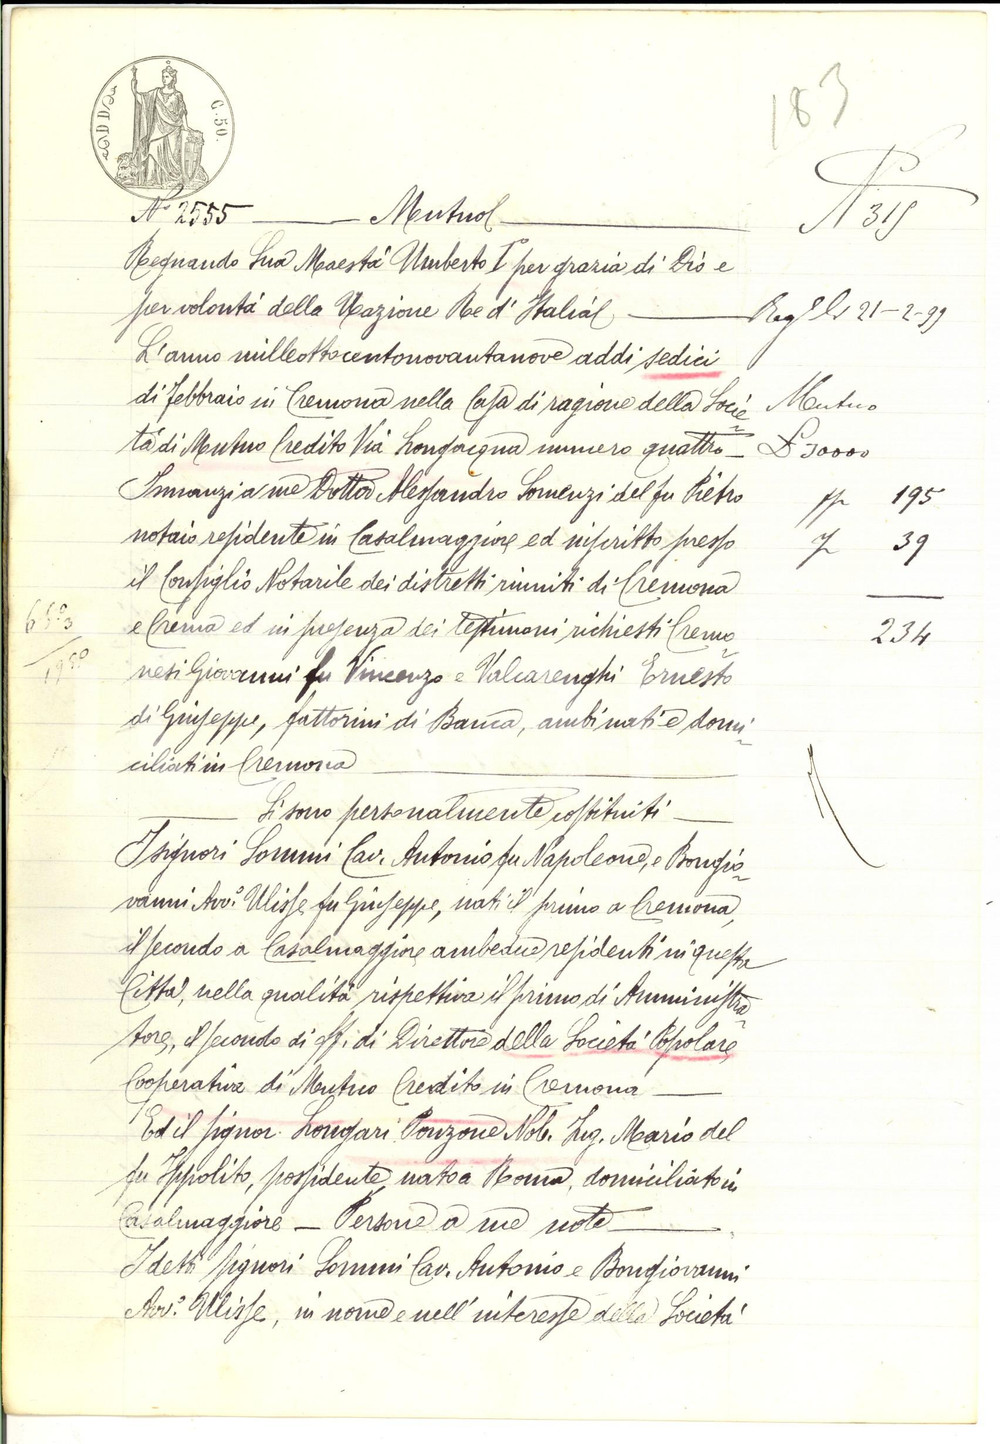 C. 50.
183
N 315
N° 2555 Mutuo
Regnando Sua Maestà Umberto I° per grazia di Dio e
per volontà della Nazione Re d'Italia
Reg° li 21-2-99
L'anno milleottocentonovantanove addi sedici
di febbraio in Cremona nella Casa di ragione della Socie
Mutuo
tà di Mutuo Credito Via Longacqua numero quattro
£ 30000
Innanzi a me Dottor Alessandro Somenzi del fu Pietro
195
notaio residente in Casalmaggiore ed inscritto presso
39
il Consiglio Notarile dei distretti riuniti di Cremona
e Crema ed in presenza dei testimoni richiesti Cremo
234
nesi Giovanni fu Vincenzo e Valcarenghi Ernesto
di Giuseppe, fattorini di Banca, ambi nati e domi
ciliati in Cremona
Si sono personalmente costituiti
I signori Sommi Cav. Antonio fu Napoleone, e Bongio
vanni Avv.° Ulisse fu Giuseppe, nati il primo a Cremona,
il secondo a Casalmaggiore ambedue residenti in questa
Città, nella qualità rispettiva il primo di Amministra
tore, il secondo di ff. di Direttore della Società Popolare
Cooperativa di Mutuo Credito in Cremona
Ed il signor Longari Ponzone Nob. Ing. Mario del
fu Ippolito, possidente, nato a Roma, domiciliato in
Casalmaggiore — Persone a me note
I detti signori Sommi Cav. Antonio e Bongiovanni
Avv.° Ulisse, in nome e nell'interesse della Società